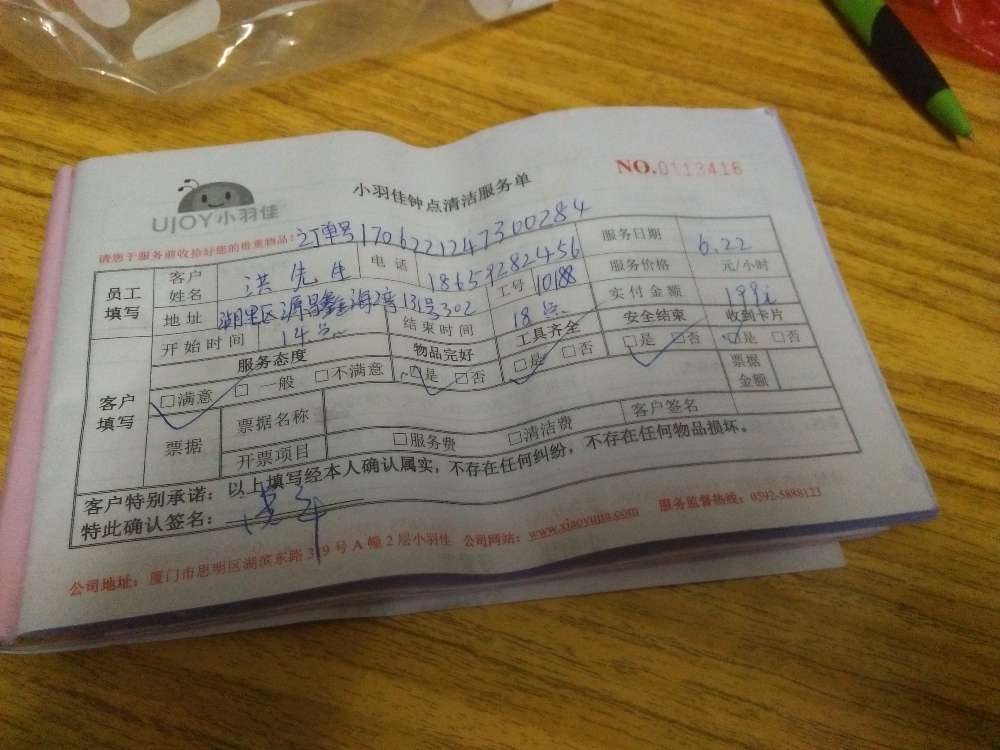 UJOY小羽佳
小羽佳钟点清洁服务单
NO.0113416
请您于服务前收拾好您的贵重物品:
订单号1706221247300284
员工填写 客户姓名 洪先生 电话 18659282456 服务日期 6.22
地址 湖里区源昌鑫海湾13号302 工号 10188 服务价格 元/小时
开始时间 14点 结束时间 18点 实付金额 199
客户填写 服务态度 物品完好 工具齐全 安全结束 收到卡片
□满意 □一般 □不满意 □是 □否 □是 □否 □是 □否 □是 □否
票据 票据名称 票据金额
开票项目 □服务费 □清洁费 客户签名
客户特别承诺:以上填写经本人确认属实,不存在任何纠纷,不存在任何物品损坏。
特此确认签名:
公司地址:厦门市思明区湖滨东路319号A幢2层小羽佳 公司网站:www.xiaoyujia.com 服务监督热线:0592-5888123